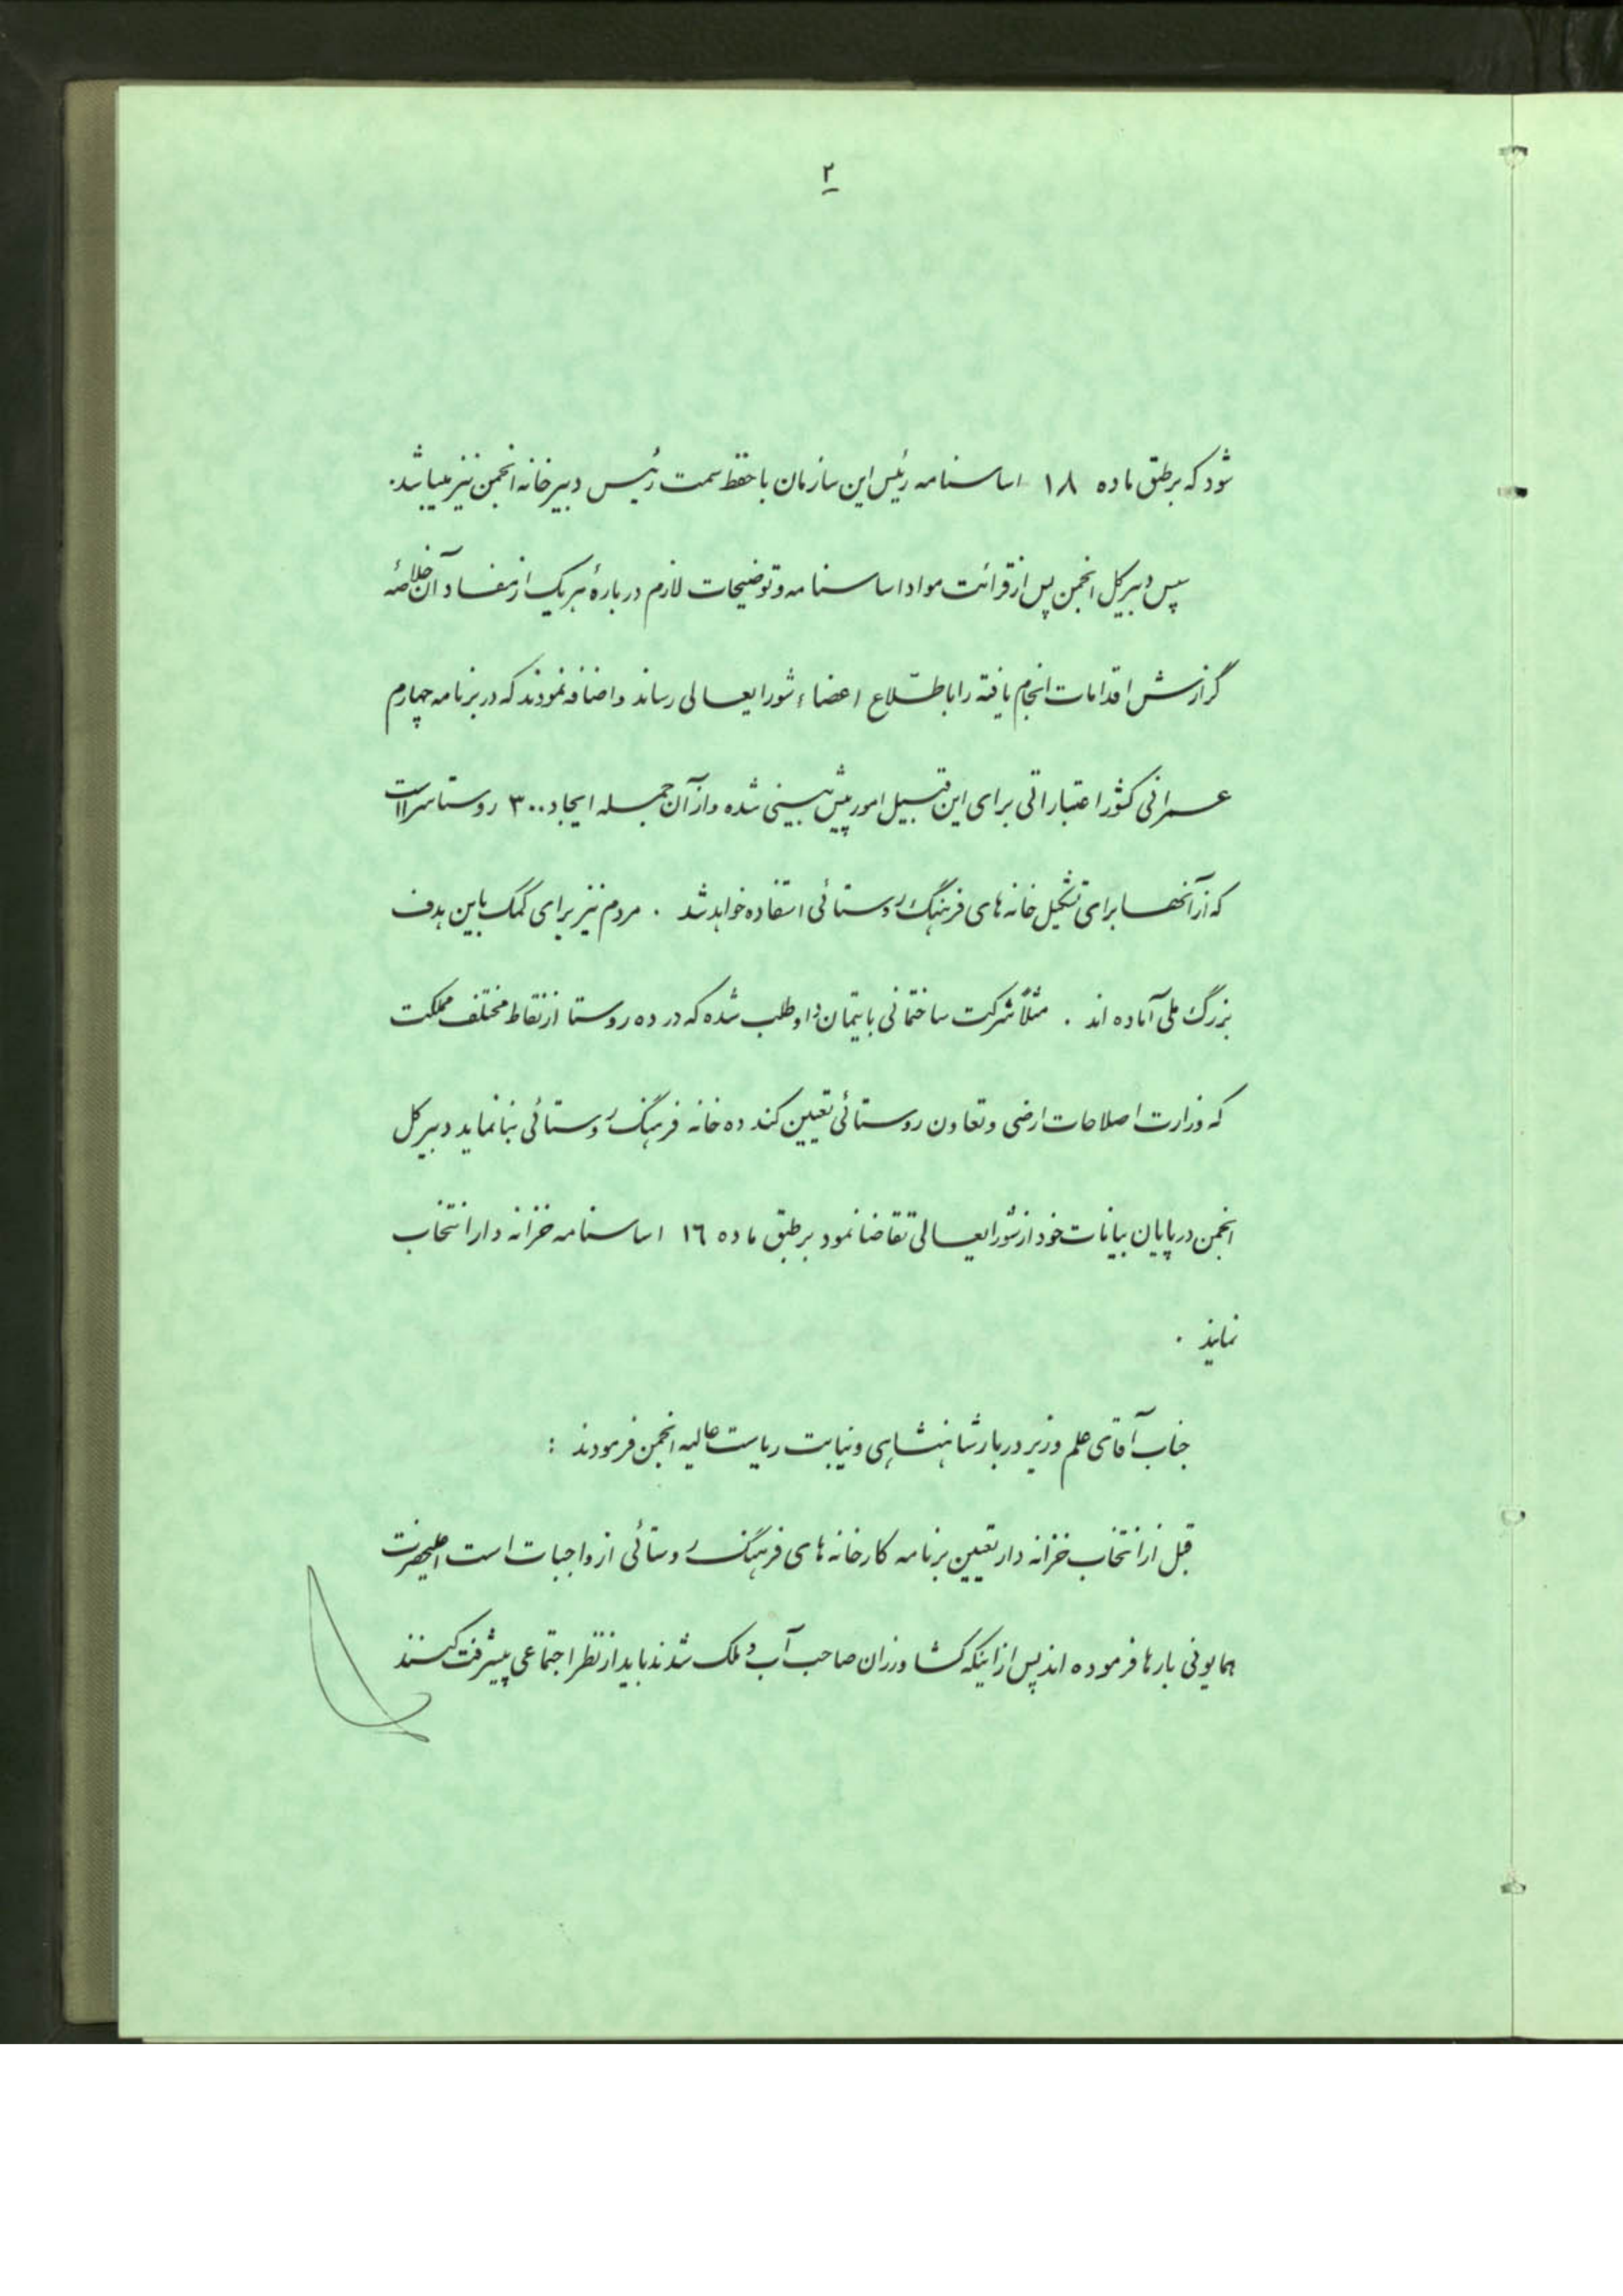 ۲
شود که برطبق ماده ۱۸ اساسنامه رئیس این سازمان با حفظ سمت رئیس دبیرخانه انجمن نیز میباشد.
سپس دبیرکل انجمن پس از قرائت مواد اساسنامه و توضیحات لازم درباره هریک از مفاد آن خلاصه
گزارش اقدامات انجام یافته را باطلاع اعضاء شورایعالی رساند و اضافه نمودند که در برنامه چهارم
عمرانی کشور اعتباراتی برای این قبیل امور پیش بینی شده و از آن جمله ایجاد ۳۰۰ روستاسرا است
که از آنها برای تشکیل خانه های فرهنگ روستائی استفاده خواهد شد . مردم نیز برای کمک باین هدف
بزرگ ملی آماده اند . مثلاً شرکت ساختمانی بایتمان داوطلب شده که در ده روستا از نقاط مختلف مملکت
که وزارت اصلاحات ارضی و تعاون روستائی تعیین کند ده خانه فرهنگ روستائی بنا نماید دبیرکل
انجمن در پایان بیانات خود از شورایعالی تقاضا نمود برطبق ماده ۱۶ اساسنامه خزانه دار انتخاب
نمایند .
جناب آقای علم وزیر دربار شاهنشاهی و نیابت ریاست عالیه انجمن فرمودند :
قبل از انتخاب خزانه دار تعیین برنامه کار خانه های فرهنگ روستائی از واجبات است اعلیحضرت
همایونی بارها فرموده اند پس از اینکه کشاورزان صاحب آب و ملک شدند باید از نظر اجتماعی پیشرفت کنند